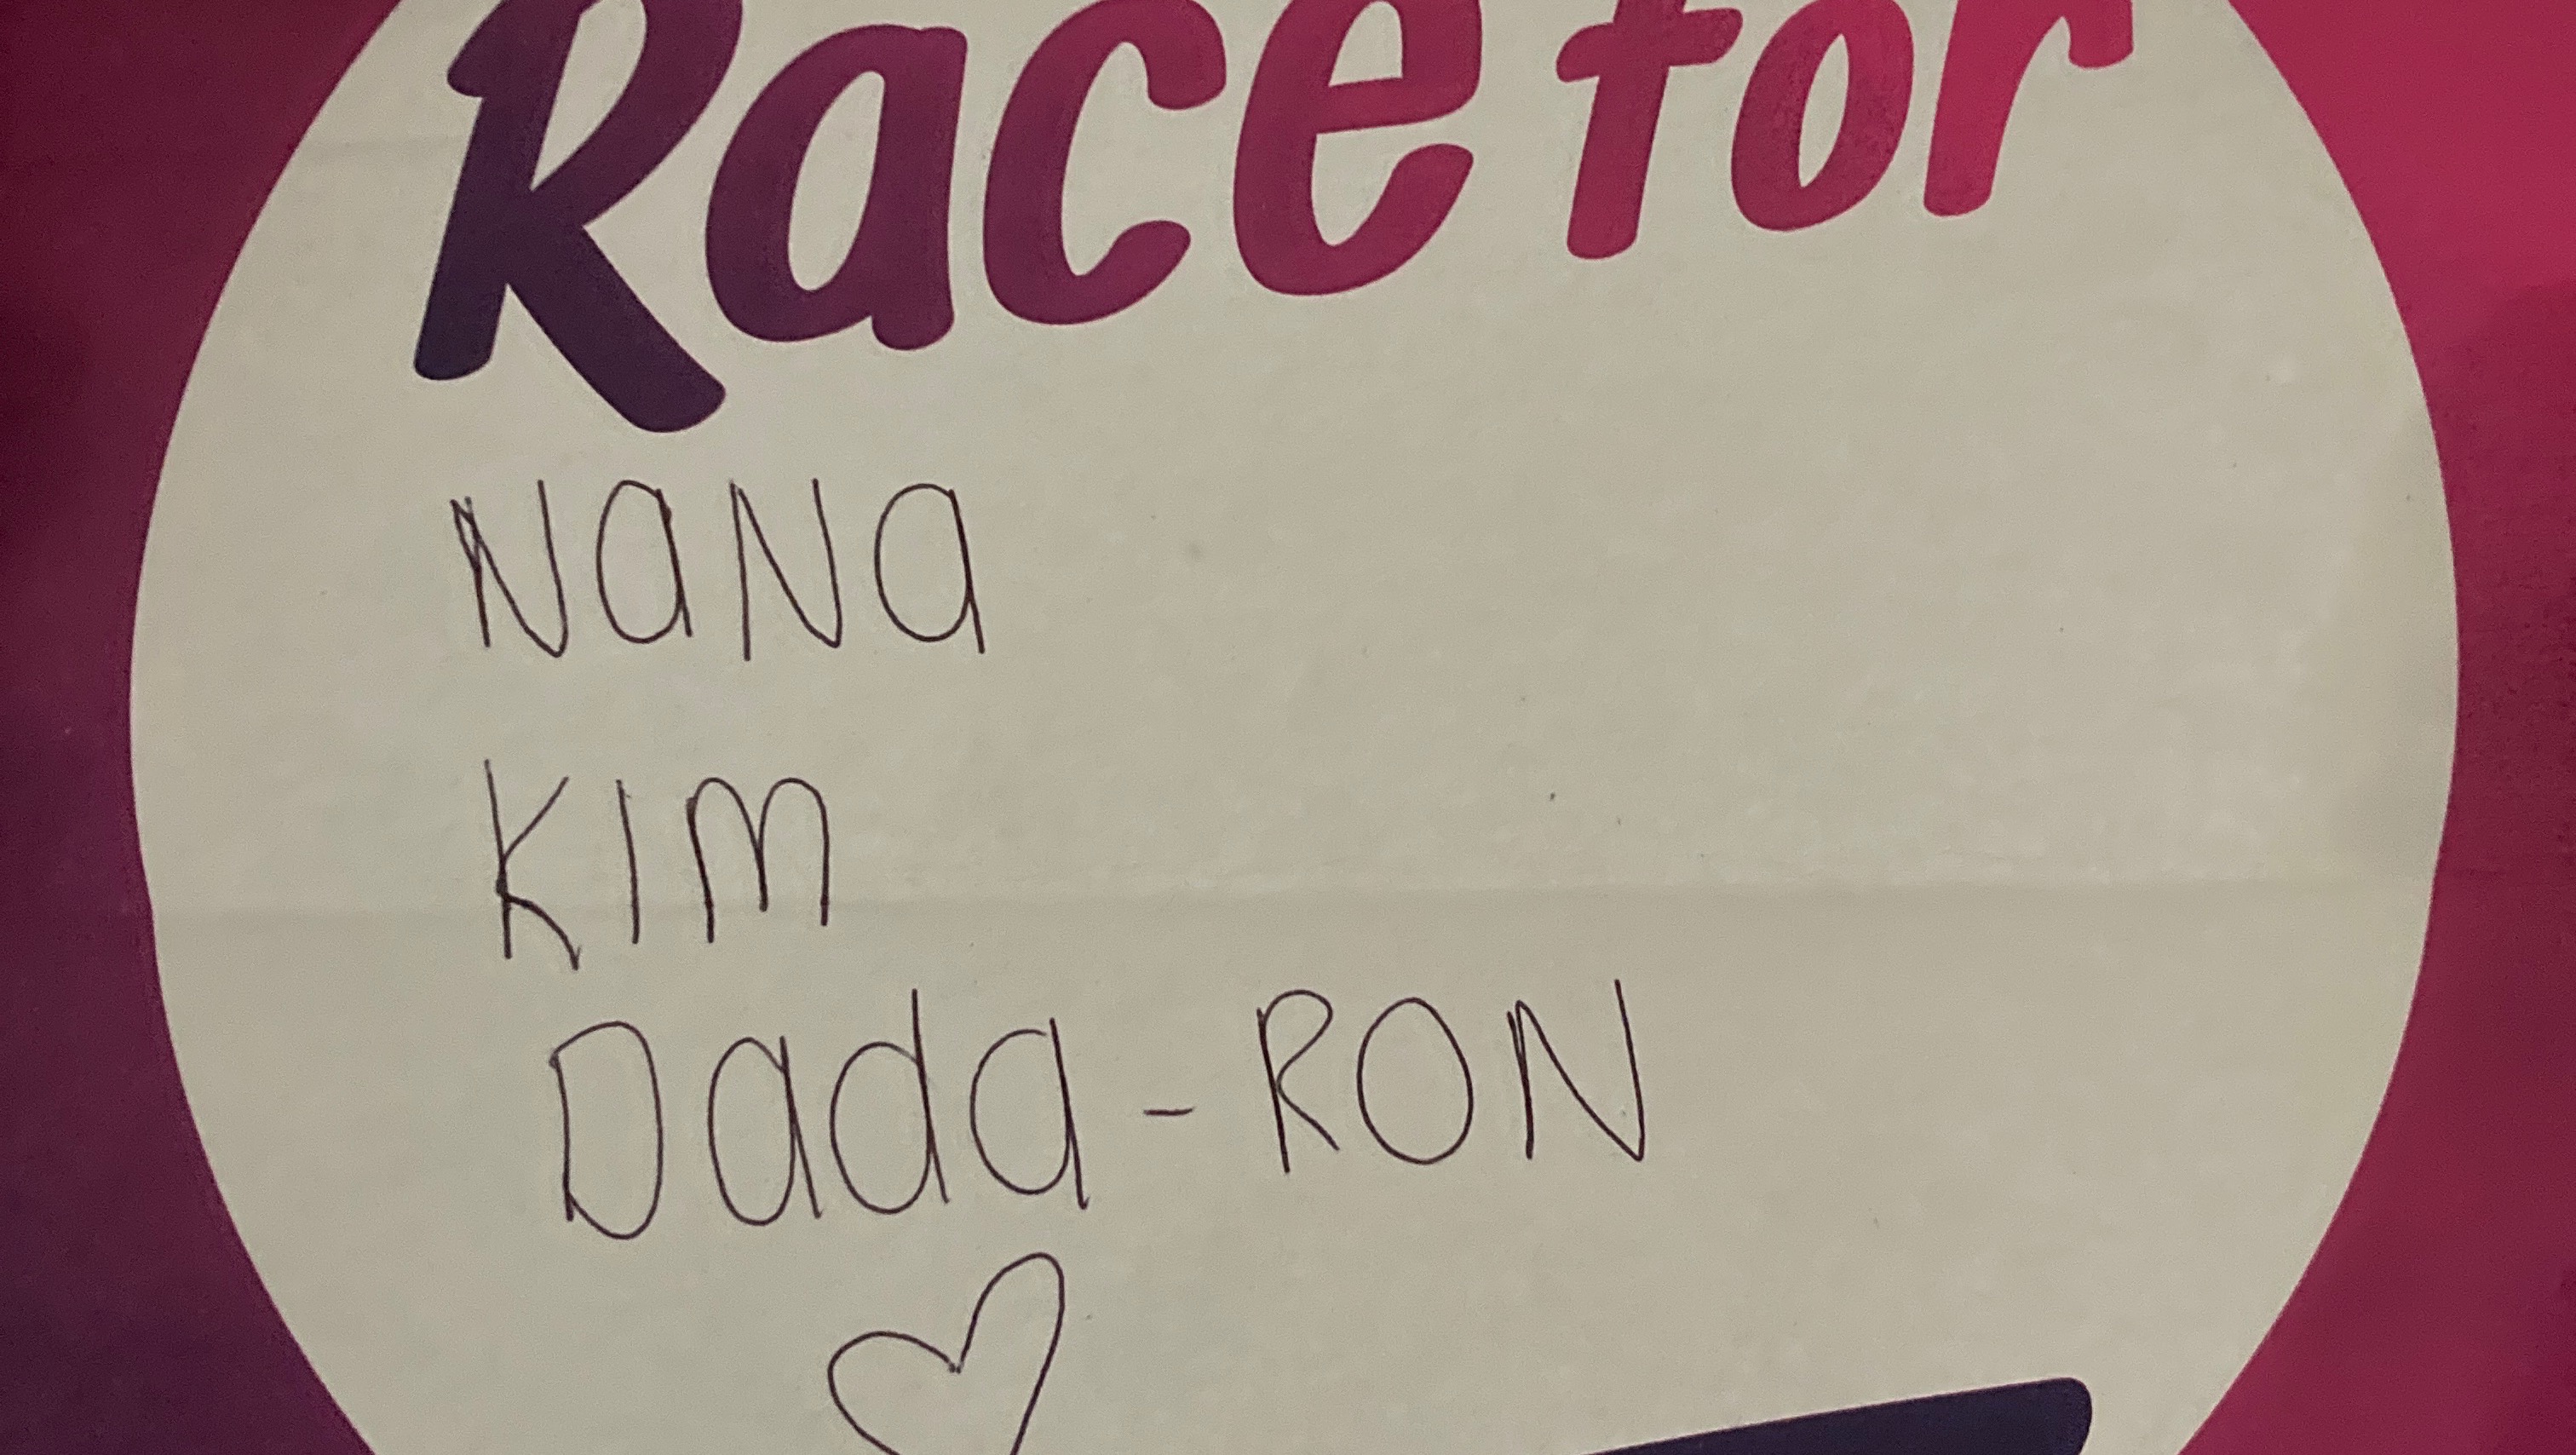 Race for
NaNa
KIM
Dada - RON